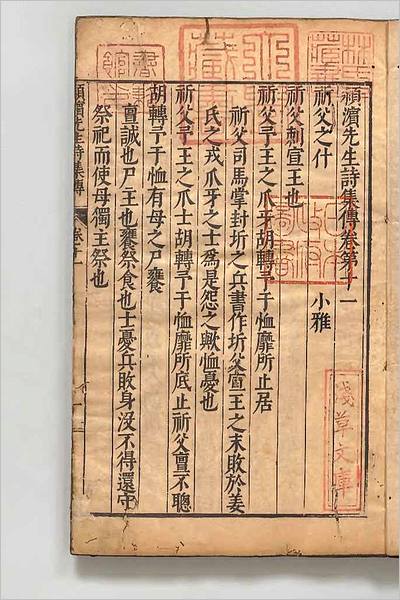 潁濱先生詩集傳卷第十一
祈父之什 小雅
祈父刺宣王也
祈父予王之爪牙胡轉予于恤靡所止居
祈父司馬掌封圻之兵書作圻父宣王之末敗於姜
氏之戎爪牙之士爲是怨之歟恤憂也
祈父予王之爪士胡轉予于恤靡所底止祈父亶不聰
胡轉予于恤有母之尸饔
亶誠也尸主也饔祭食也士憂兵敗身沒不得還守
祭祀而使母獨主祭也
潁濱先生詩集傳
卷十一
淺草文庫
日本政府圖書
書籍館印